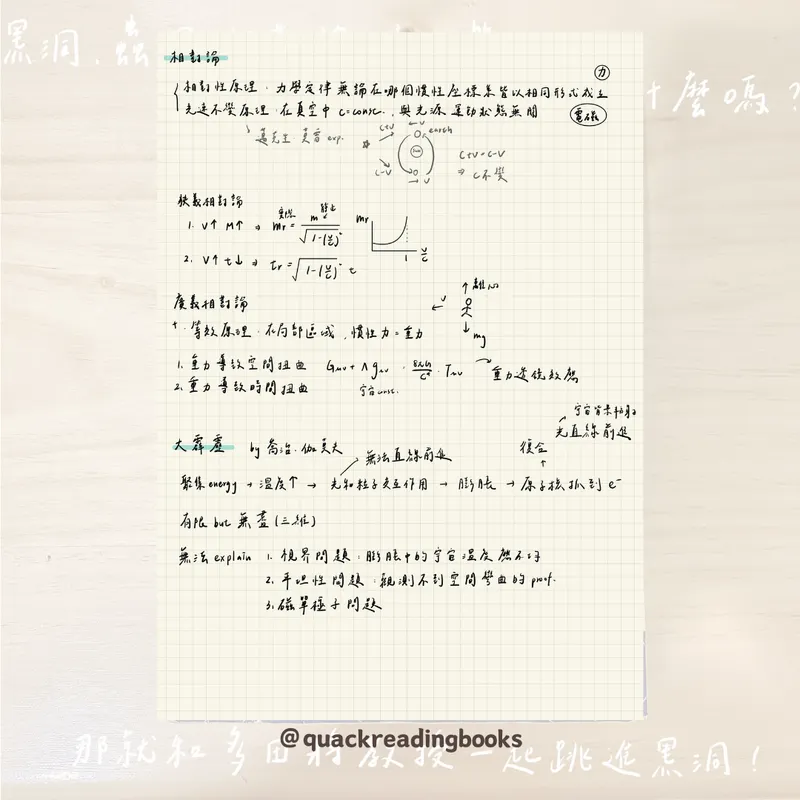 黑洞、蟲
什麼嗎?
相對論
力
相對性原理:力學定律無論在哪個慣性座標系皆以相同形式成立
光速不變原理:在真空中 c=const. 與光源運動狀態無關
電磁
exp.
c+v
←v
earth
sun
c-v
→v
c+v=c-v
⇒ c不變
狹義相對論
1. v↑ m↑ ⇒ mr = m / √(1-(v/c)²)
靜止
mr
1
v/c
2. v↑ t↓ ⇒ tr = √(1-(v/c)²) t
廣義相對論
↑離心
←v
↓mg
等效原理:在局部區域,慣性力=重力
1. 重力導致空間扭曲 Gμν + Λgμν = 8πG/c⁴ · Tμν
重力透鏡效應
2. 重力導致時間扭曲
宇宙const.
宇宙背景輻射
光直線前進
大霹靂 by 喬治.伽莫夫
無法直線前進
復合
聚集energy → 溫度↑ → 光和粒子交互作用 → 膨脹 → 原子核抓到 e⁻
有限 but 無盡(三維)
無法 explain 1. 視界問題:膨脹中的宇宙溫度應不均
2. 平坦性問題:觀測不到空間彎曲的 proof.
3. 磁單極子問題
@quackreadingbooks
那就和多田將教授一起跳進黑洞!